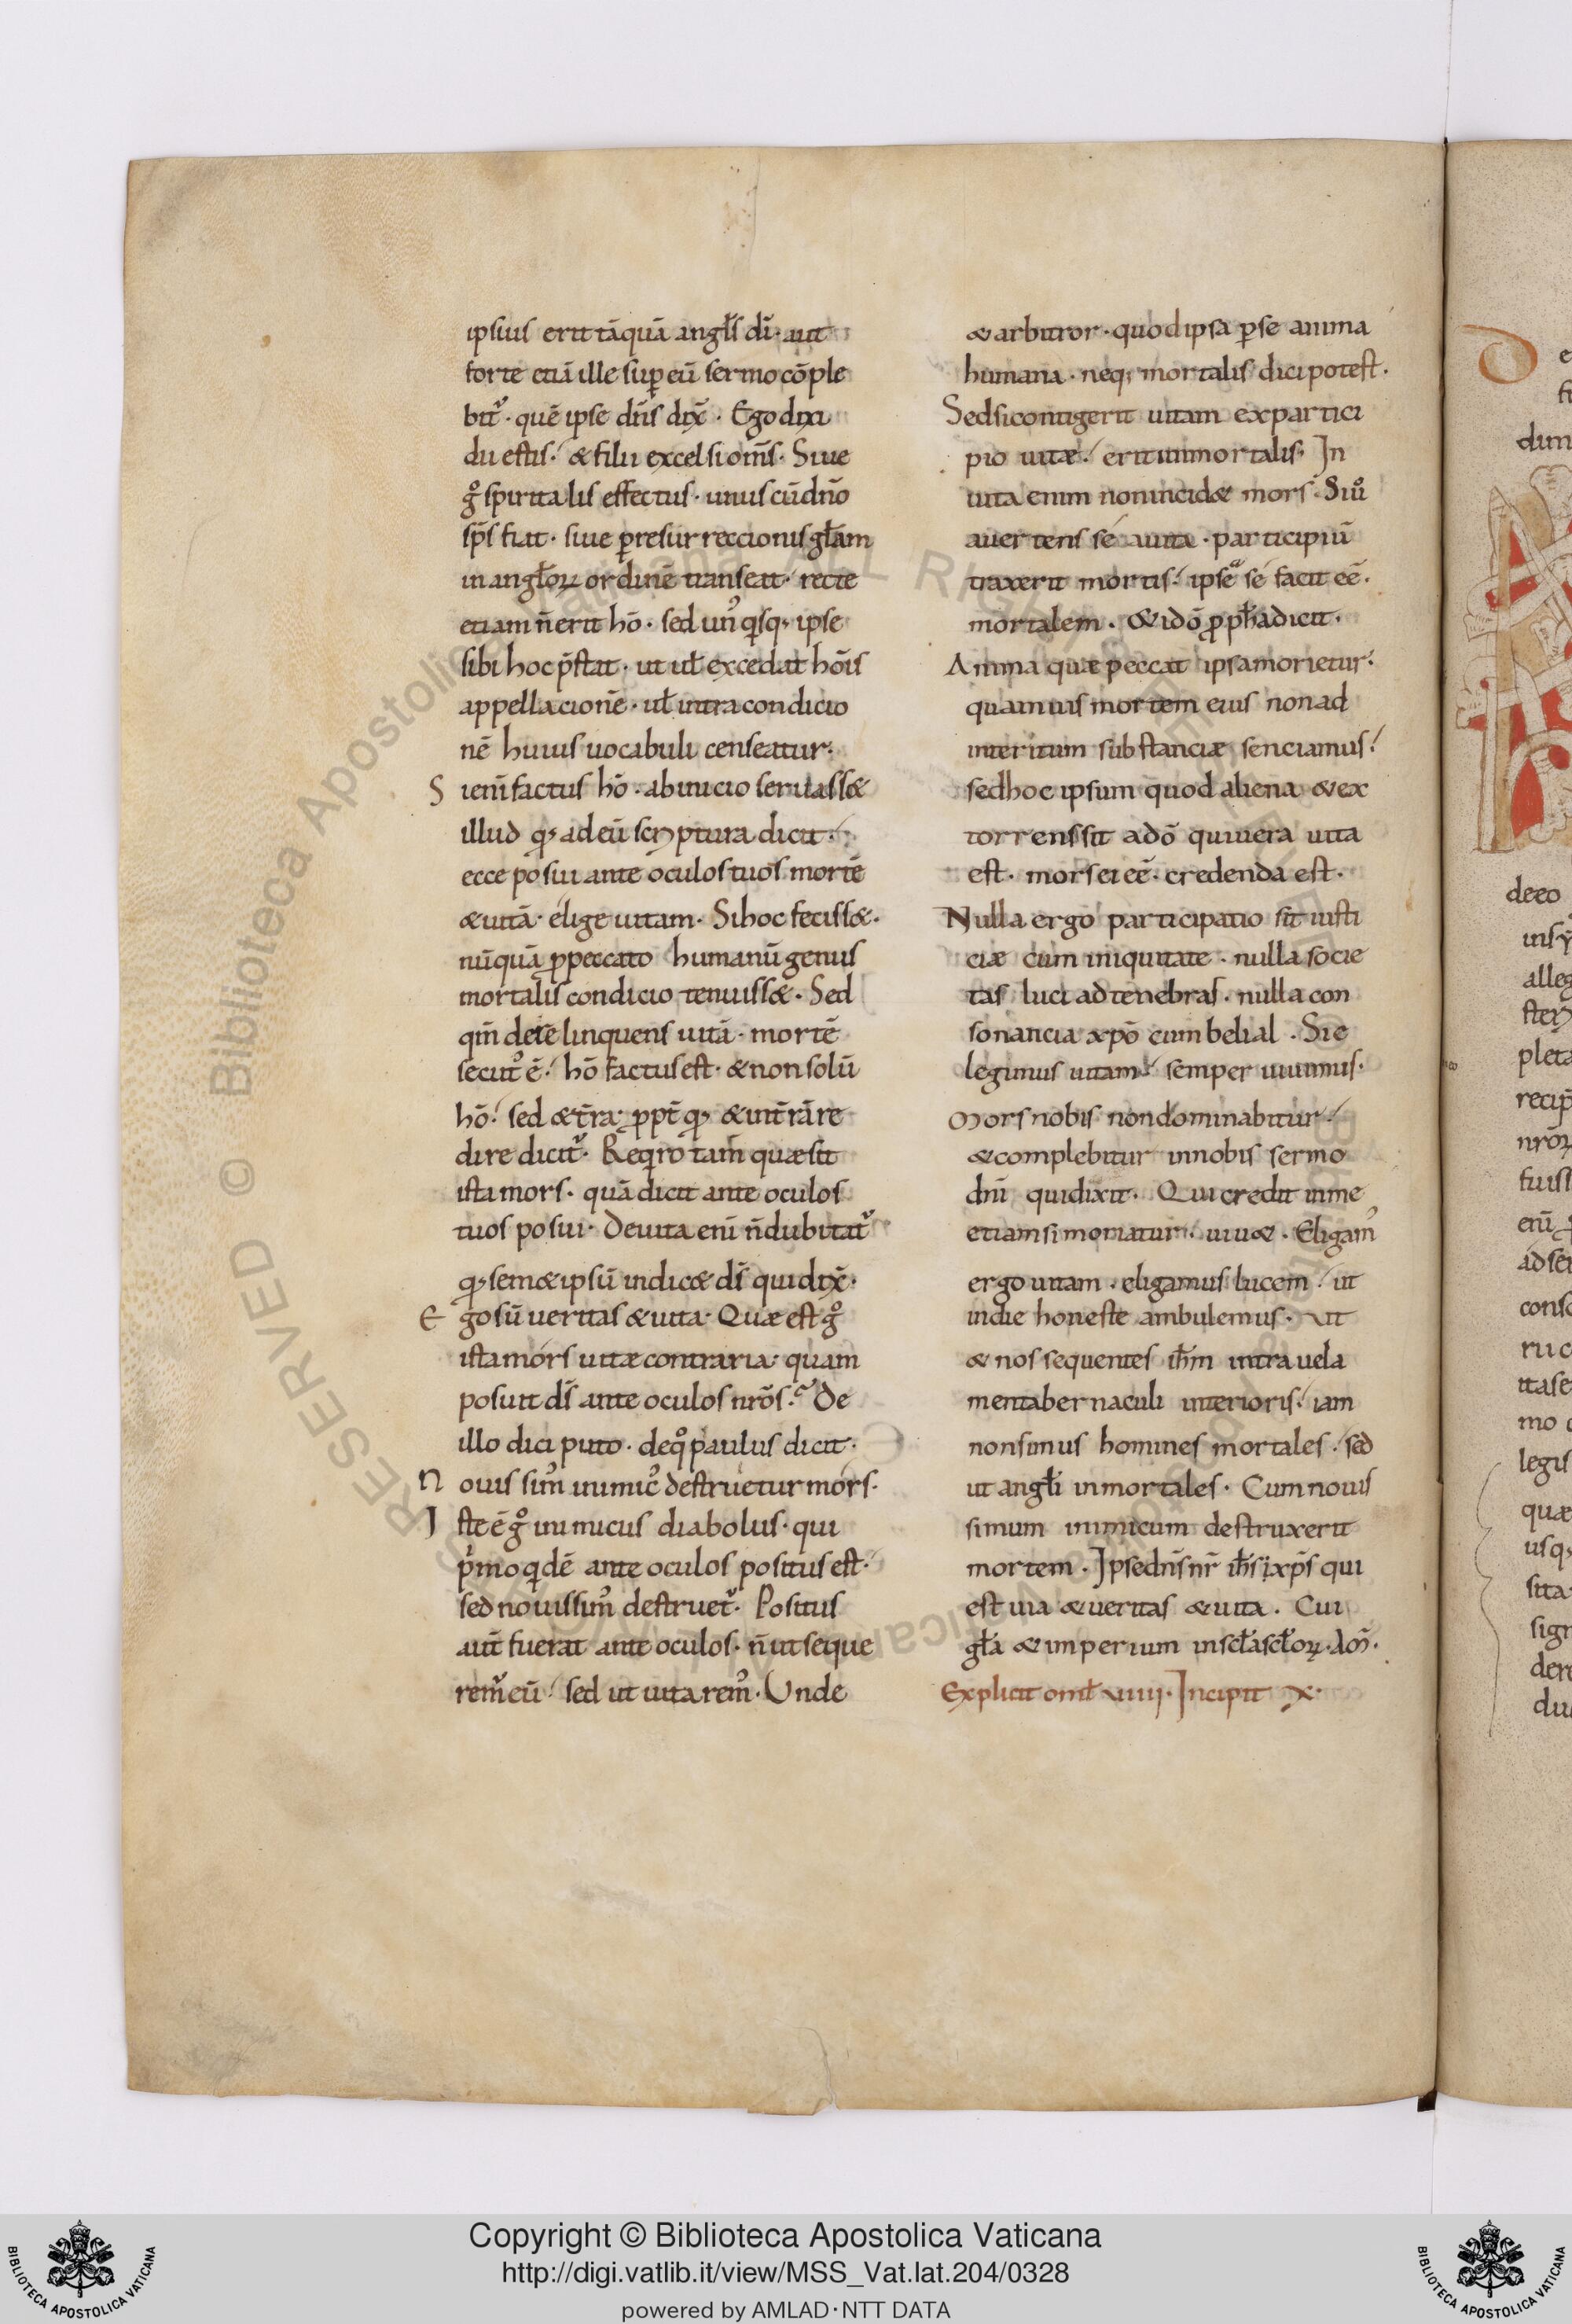 ipsius erit tāquā angl̄s dī· aut
forte etiā ille sup eū sermo cōple
bit᷒· quē ipse dn̄s dix̄· Ego dixi
dii estis· & filii excelsi om̄s· Siue
gͦ spiritalis effectus· unus cū dn̄o
sp̄s fiat· siue ꝑ resurreccionis gl̄am
in angl̄oꝝ ordinē transeat· recte
etiam n̄ erit hō· sed un᷒ qͥsq· ipse
sibi hoc p̄stat· ut ul̄ excedat hōis
appellacionē· ul̄ intra condicio
nē huius uocabuli censeatur·
S ienī factus hō· ab inicio seruass&
illud qͩ ad eū scriptura dicit·
ecce posui ante oculos tuos mortē
& uitā· elige uitam· Si hoc feciss&·
nūquā ꝓ peccato humanū genus
mortalis condicio tenuiss&· Sed
qm̄ derelinquens uitā· mortē
secut᷒ ē· hō factus est· & non solū
hō· sed & t̄ra· ꝓpt̄ qͩ & in t̄rā re
dire dicit᷒· Reqͥro tam̄ quæ sit
ista mors· quā dicit ante oculos
tuos posui· De uita enī n̄ dubitat᷒
qͩ sem&ipsū indic& dī qui dix̄·
E go sū ueritas & uita· Quæ est gͦ
ista mors uitæ contraria· quam
posuit dī ante oculos nr̄os· De
illo dici puto· de qͦ paulus dicit·
N ouissim᷒ inimic᷒ destruetur mors·
I ste ē gͦ inimicus diabolus· qui
pͥmo qͥdē ante oculos positus est·
sed nouissim᷒ destruet᷒· Positus
aut̄ fuerat ante oculos· n̄ ut seque
rem᷒ eū· sed ut uitarem᷒· Unde
& arbitror· quod ipsa ꝑ se anima
humana· neq· mortalis dici potest·
Sed si contigerit uitam ex partici
pio uitæ· erit inmortalis· In
uita enim non incid& mors· Siuͦ
auertens se a uita· participiū
traxerit mortis· ipsᵃ se facit eē·
mortalem· & idō ꝓph̄a dicit·
Anima quæ peccat ipsa morietur·
quamuis mortem eius non ad
interitum substanciæ senciamus·
sed hoc ipsum quod aliena & ex
torrens sit a dō qui uera uita
est· mors ei eē· credenda est·
Nulla ergo participatio sit iusti
ciæ cum iniquitate· nulla socie
tas luci ad tenebras· nulla con
sonancia xp̄o cum belial· Si e
legimus uitam· semper uiuimus·
Mors nobis non dominabitur·
& complebitur in nobis sermo
dn̄i qui dixit· Qui credit in me
etiam si moriatur· uiu&· Eligam᷒
ergo uitam· eligamus lucem· ut
in die honeste ambulemus· Ut
& nos sequentes ih̄m intra uela
men tabernaculi interioris· iam
non simus homines mortales· sed
ut angl̄i inmortales· Cum nouis
simum inimicum destruxerit
mortem· Ipse dn̄s nr̄ ih̄s xp̄s qui
est uia & ueritas & uita· Cui
gl̄a & imperium in scl̄a scl̄oꝝ· Am̄·
Explicit omł viiii· Incipit x·
deeo
dim
alleg
pleta
recip
fuiss
adse
conso
ru c
itase
mo
legis
quæ
usq·
sita·
sign
dere
du
RESERVED © Biblioteca Apostolica Vaticana. ALL RIGHTS
Copyright © Biblioteca Apostolica Vaticana
http://digi.vatlib.it/view/MSS_Vat.lat.204/0328
powered by AMLAD·NTT DATA
BIBLIOTECA APOSTOLICA VATICANA
BIBLIOTECA APOSTOLICA VATICANA